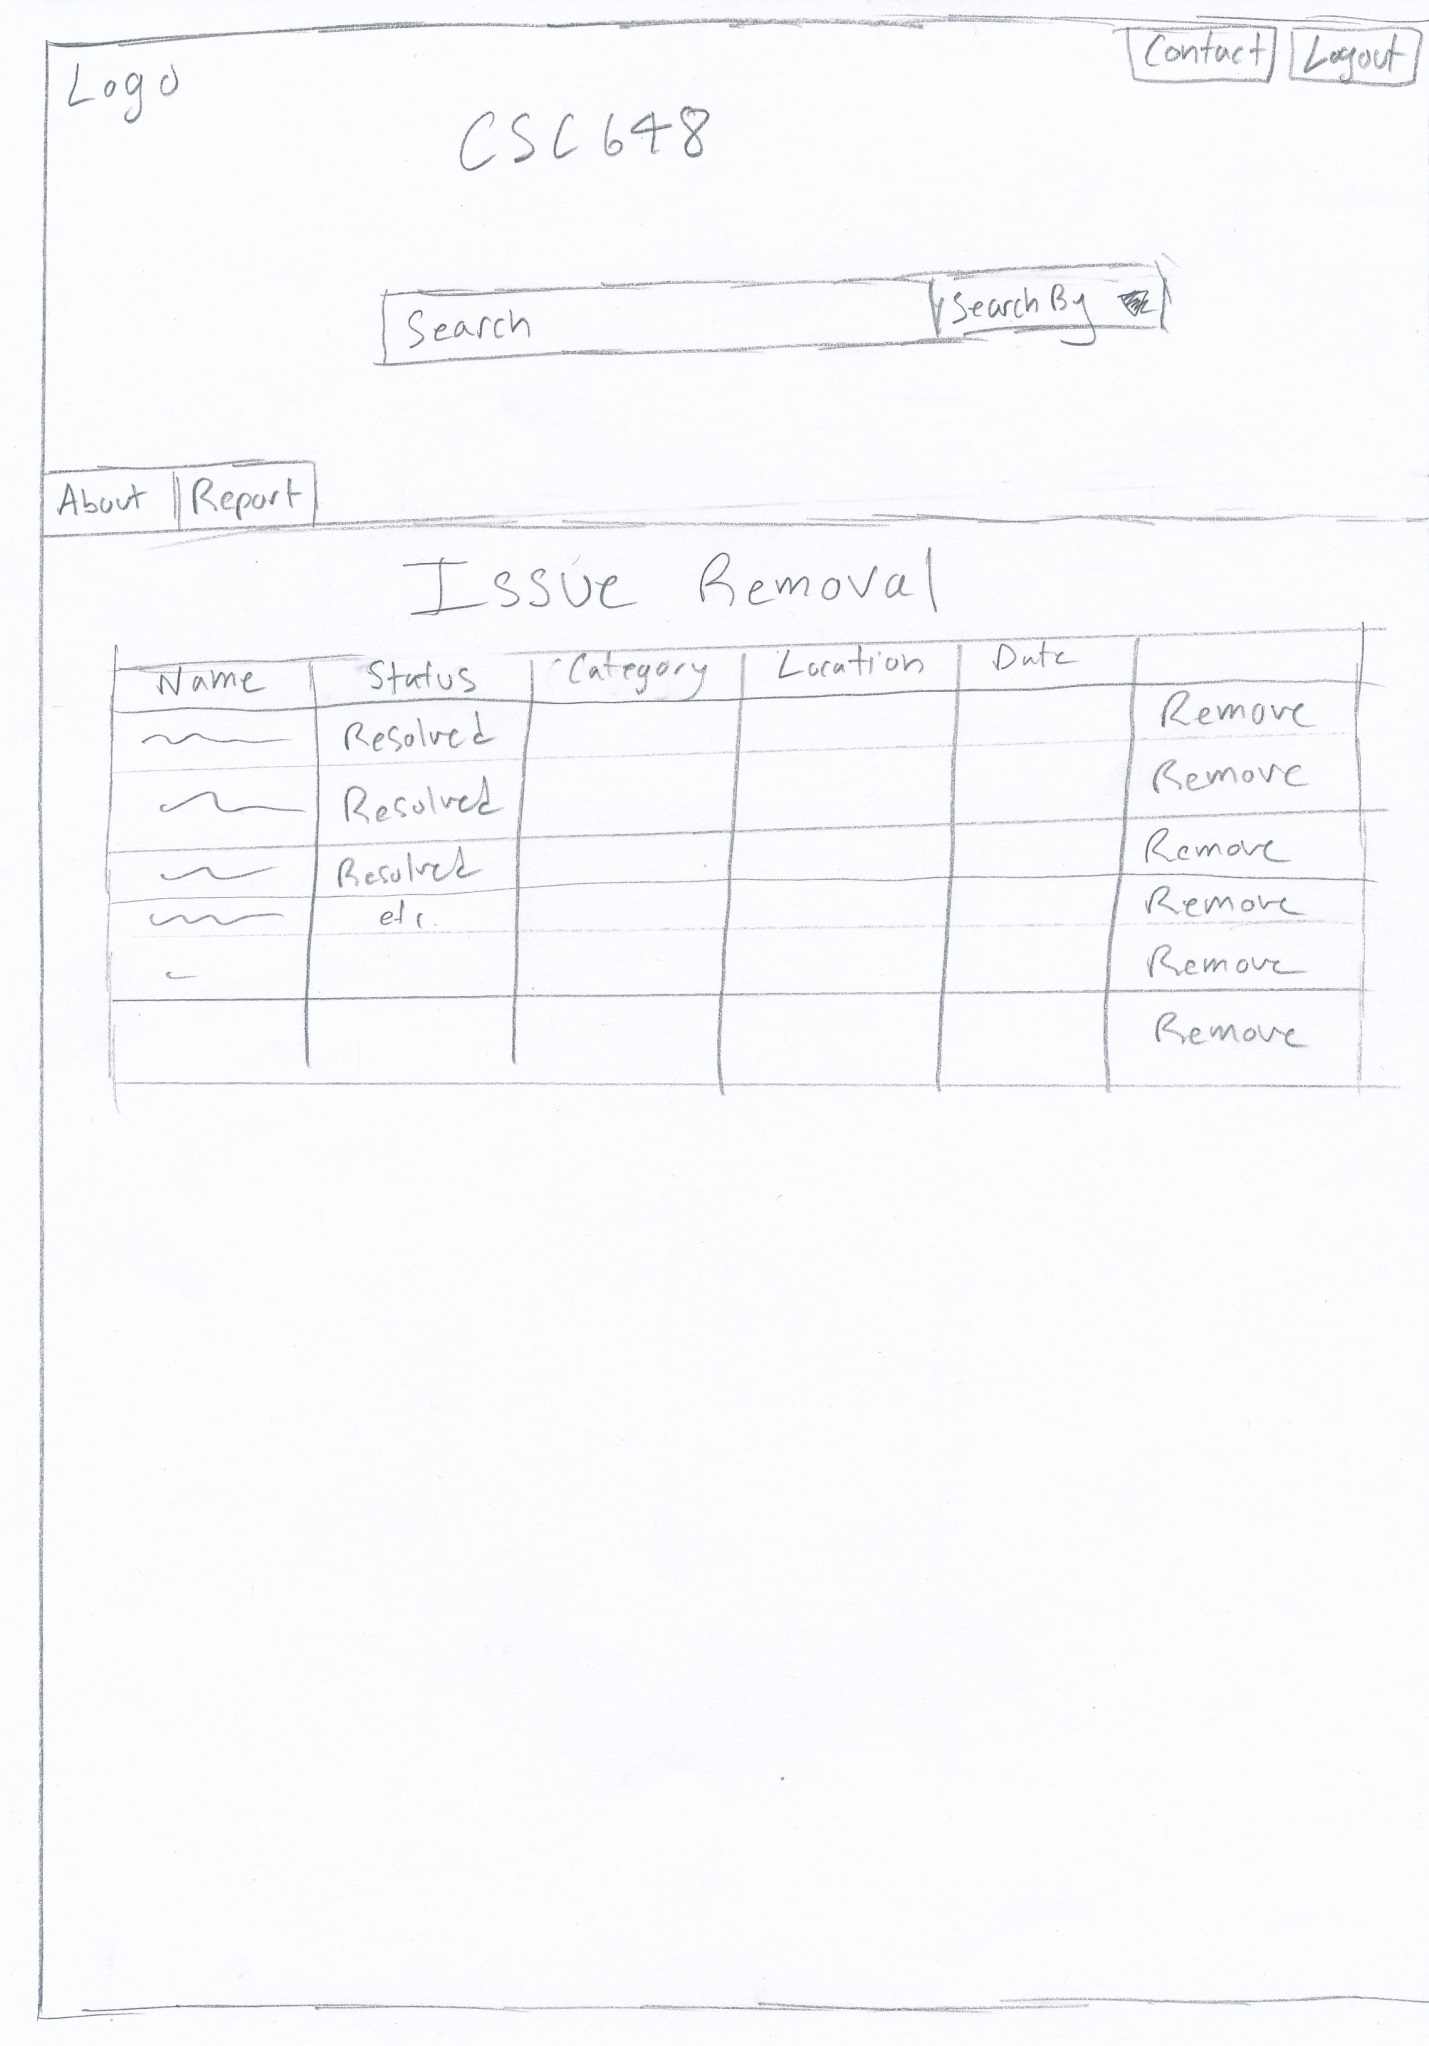 Contact Logout
Logo
CSC 648
Search Search By
About Report
Issue Removal
Name Status Category Location Date
Resolved Remove
Resolved Remove
Resolved Remove
etc. Remove
Remove
Remove